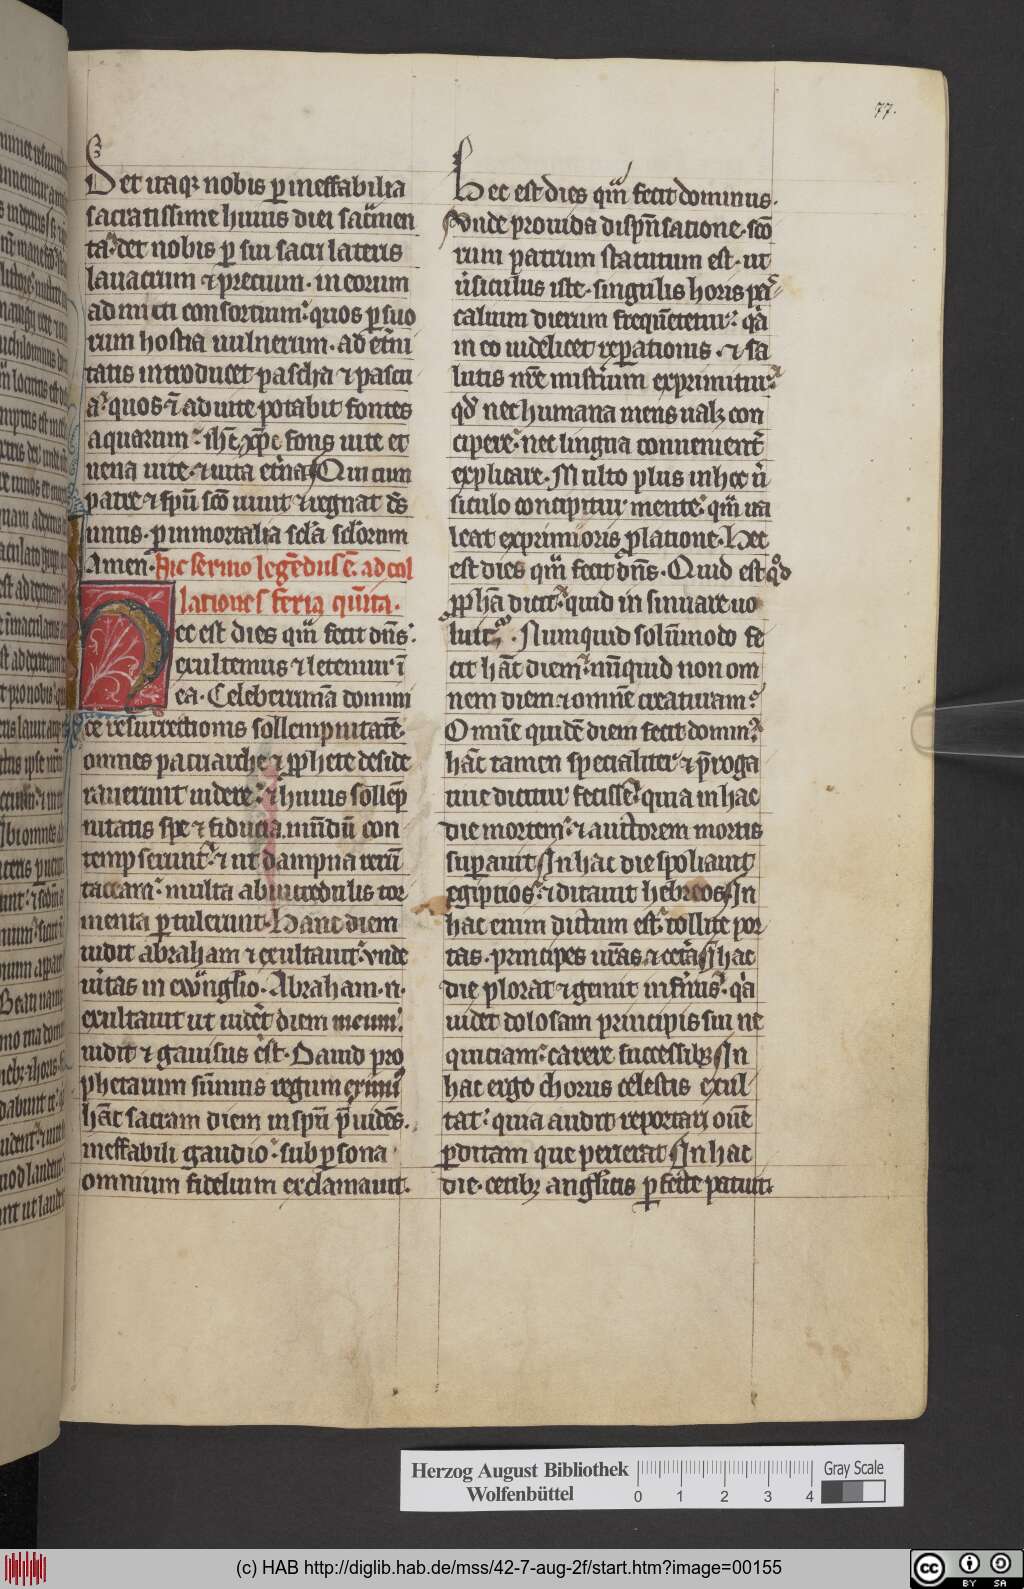 77.
Det itaqꝫ nobis ꝑ ineffabilia
sacratissime huius diei sacͣmen
ta. det nobis ꝑ sui sacri lateris
lauacrum ⁊ precium. in eorum
admitti consortium: quos ꝑ suo
rum hostia uulnerum. ad et̾ni
tatis introducet pascha ⁊ pascu
a: quos ⁊̄ ad uite potabit fontes
aquarum: ih̄c xp̄c fons uite et
uena uite. ⁊ uita et̾na. Qui cum
patre ⁊ sp̄u sc̄o uiuit ⁊ regnat d̄s
unus. ꝑ inmortalia sc̄la sc̄lorum
Amen. Hic sermo legēdus ē. ad col
lationes feria qͥnta.
Hec est dies quā fecit dn̄s:
exultemus ⁊ letemur ī
ea. Celeberrimā domini
ce resurrectionis sollempnitatē.
omnes patriarche ⁊ ꝓphete deside
rauerunt uidere: ⁊ huius sollēp
nitatis spe ⁊ fiducia. mūdū con
tempserunt: ⁊ ut dampna rerū
taceam: multa ab incredulis tor
menta ꝑtulerunt. Hanc diem
uidit abraham ⁊ exultauit: vnde
uͥtas in ewͣnglio. Abraham. n.
exultauit ut uidēt diem meum:
uidit ⁊ gauisus est. Dauid pro
phetarum sūmus regum eximi9
hāc sacram diem in sp̄u p̄uidēs.
ineffabili gaudio: sub ꝑsona
omnium fidelium exclamauit.
Hec est dies quā fecit dominus.
Vnde prouida dispn̄satione. scō
rum patrum statutum est. ut
u̾siculus iste. singulis horis pas
calium dierum frequētetur: qͥa
in eo uidelicet reꝑationis. ⁊ sa
lutis nr̄e mist̾ium exprimitur:
qd̄ nec humana mens ualꝫ con
cipere: nec lingua conuenient̾
explicare. Multo plus in hoc u̾
siculo concipitur mente: quā ua
leat exprimi oris ꝓlatione. Hec
est dies quā fecit dn̄s. Quid est qͦd
ꝓph̄a dicit: quid insinuare uo
luit. Numquid solūmodo fe
cit hāc diem: nūquid non om
nem diem ⁊ omnē creaturam?
Omnē quidē diem fecit domin9:
hāc tamen specialiter ⁊ p̄roga
tiue dicitur fecisse: quia in hac
die mortem: ⁊ auctorem mortis
suꝑauit. In hac die spoliauit
egiptios: ⁊ ditauit hebreos. In
hac enim dictum est: tollite por
tas. principes ur̄as ⁊ cetͣa. In hac
die plorat ⁊ gemit infern9: qͥa
uidet dolosam principis sui ne
quiciam: carere successibꝫ. In
hac ergo chorus celestis exul
tat: quia audit reportari ouē
ꝑditam que perierat. In hac
die. cetibꝫ angl̄icis ꝑ fecte patuit
Herzog August Bibliothek
Wolfenbüttel
0 1 2 3 4
Gray Scale
(c) HAB http://diglib.hab.de/mss/42-7-aug-2f/start.htm?image=00155
cc BY SA